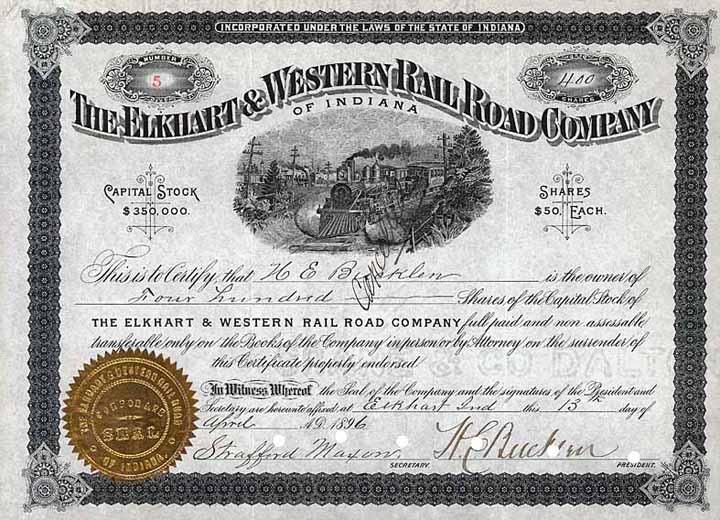 INCORPORATED UNDER THE LAWS OF THE STATE OF INDIANA
NUMBER
5
400
SHARES
THE ELKHART & WESTERN RAIL ROAD COMPANY
OF INDIANA
CAPITAL STOCK
$350,000.
SHARES
$50, EACH.
Cancel
This is to Certify that H E Bucklen is the owner of
Four hundred Shares of the Capital Stock of
THE ELKHART & WESTERN RAIL ROAD COMPANY full paid and non assessable
transferable only on the Books of the Company in person or by Attorney on the surrender of
this Certificate properly endorsed
In Witness Whereof the Seal of the Company and the signatures of the President and
Secretary are hereunto affixed at Elkhart Ind this 13 day of
April A.D. 1896
Strafford Maxon
SECRETARY.
H.E. Bucklen
PRESIDENT.
WESTERN RAILROAD
SEAL
OF INDIANA.